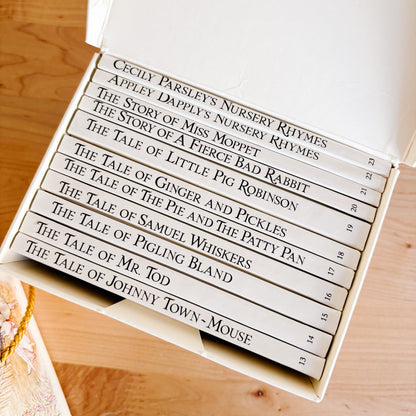 Cecily Parsley's Nursery Rhymes 23
Appley Dapply's Nursery Rhymes 22
The Story of Miss Moppet 21
The Story of A Fierce Bad Rabbit 20
The Tale of Little Pig Robinson 19
The Tale of Ginger and Pickles 18
The Tale of The Pie and The Patty Pan 17
The Tale of Samuel Whiskers 16
The Tale of Pigling Bland 15
The Tale of Mr. Tod 14
The Tale of Johnny Town-Mouse 13